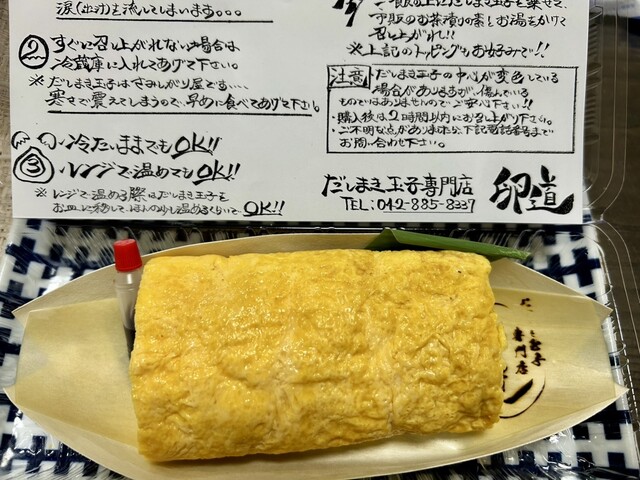 涙(出汁)を流してしまいます。。。
②すぐに召し上がれない場合は
冷蔵庫に入れてあげて下さい。
※だしまき玉子はさみしがり屋です…
寒さで震えてしまうので、早めに食べてあげて下さい。
③冷たいままでもOK!!
レンジで温めてもOK!!
※レンジで温める際はだしまき玉子を
お皿に移して、ほんの少し温めるくらいでOK!!
市販のお茶漬の素もお湯をかけて
召し上がれ!!
※上記のトッピングもお好みで!!
注意
だしまき玉子の中心が変色している
場合がありますが、傷んでいる
ものではありませんのでご安心下さい!!
・購入後は2時間以内にお召し上がり下さい。
・ご不明な点がありましたら、下記電話番号まで
お問い合わせ下さい。
だしまき玉子専門店
卵道
TEL:042-885-8337
専門店